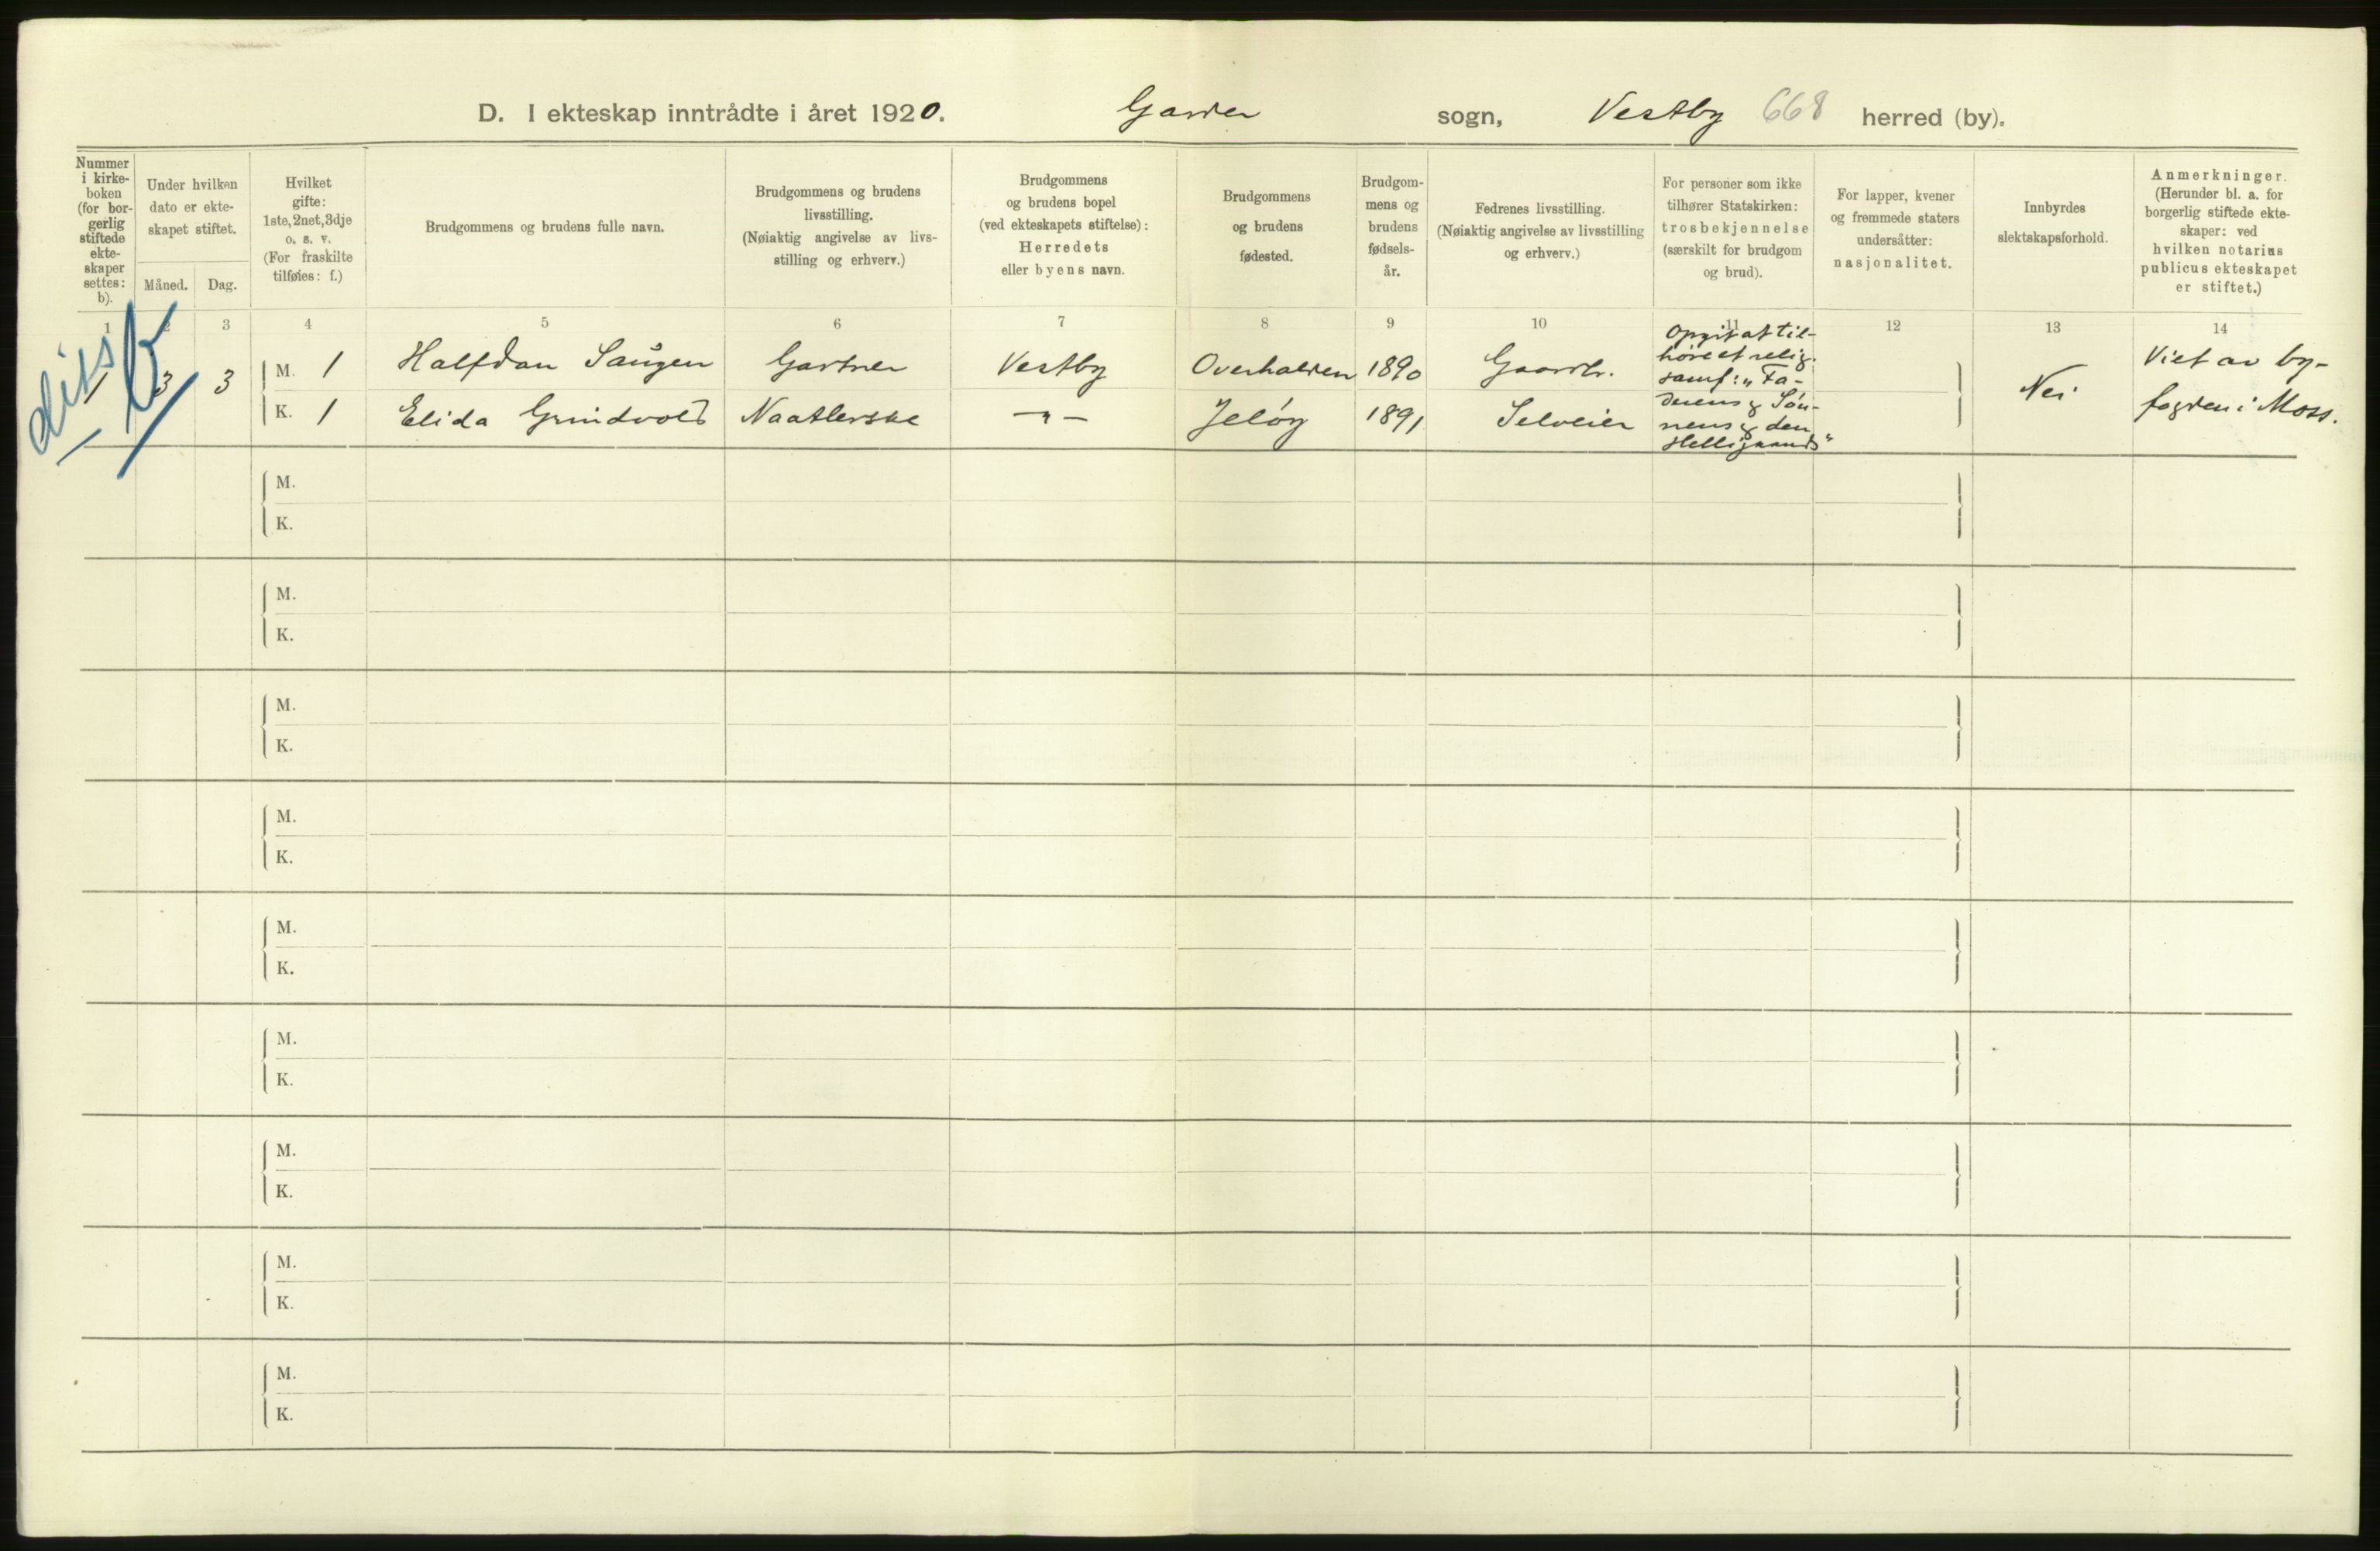 D. I ekteskap inntrådte i året 1920. Garder sogn, Vestby 668 herred (by).
Nummer i kirke-boken (for bor-gerlig stiftede ekte-skaper settes: b).
Under hvilken dato er ekte-skapet stiftet.
Måned. Dag.
Hvilket gifte: 1ste, 2net, 3dje o. s. v. (For fraskilte tilføies: f.)
Brudgommens og brudens fulle navn.
Brudgommens og brudens livsstilling. (Nøiaktig angivelse av livs-stilling og erhverv.)
Brudgommens og brudens bopel (ved ekteskapets stiftelse): Herredets eller byens navn.
Brudgommens og brudens fødested.
Brudgom-mens og brudens fødsels-år.
Fedrenes livsstilling. (Nøiaktig angivelse av livsstilling og erhverv.)
For personer som ikke tilhører Statskirken: trosbekjennelse (særskilt for brudgom og brud).
For lapper, kvener og fremmede staters undersåtter: nasjonalitet.
Innbyrdes slektskapsforhold.
Anmerkninger. (Herunder bl. a. for borgerlig stiftede ekte-skaper: ved hvilken notarius publicus ekteskapet er stiftet.)
1 2 3 4 5 6 7 8 9 10 11 12 13 14
diss b
1 3 3
M. 1 Halfdan Saugen Gartner Vestby Overhalden 1890 Gaardbr.
K. 1 Elida Grindvold Naatlerske -"- Jeløy 1891 Selveier
Opgit at til-
høre et relig.
samf: "Fa-
derens og Søn-
nens og den
Helligaands"
Nei
Viet av by-
fogden i Moss.
M.
K.
M.
K.
M.
K.
M.
K.
M.
K.
M.
K.
M.
K.
M.
K.
M.
K.